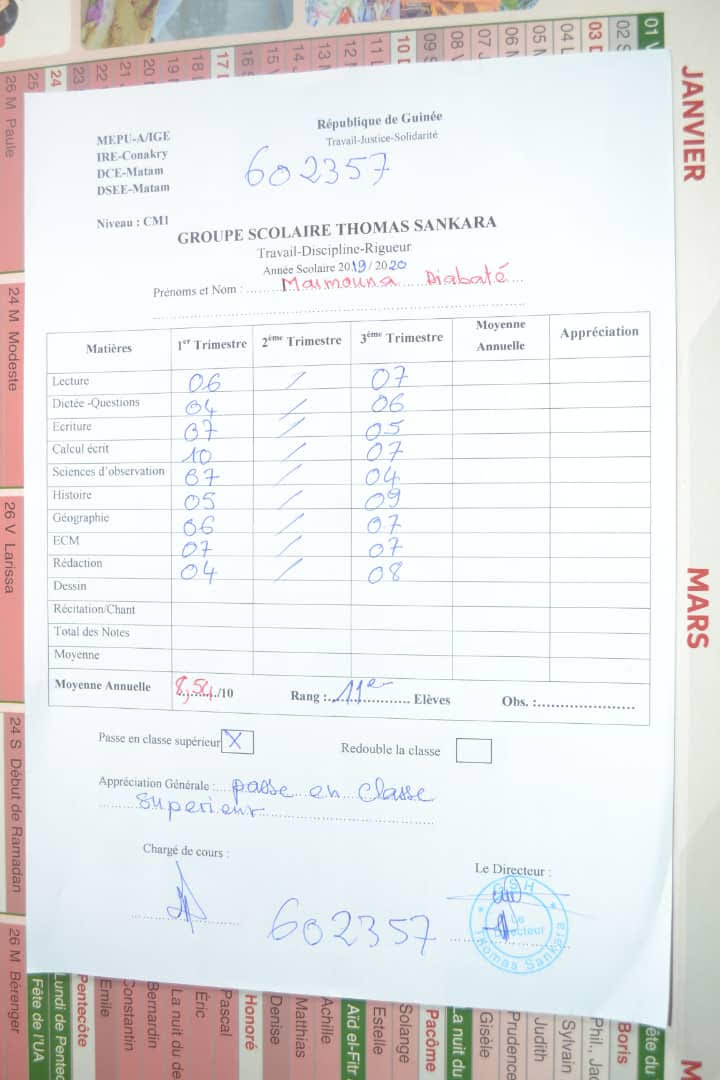 MEPU-A/IGE
IRE-Conakry
DCE-Matam
DSEE-Matam
République de Guinée
Travail-Justice-Solidarité
602357
Niveau : CM1
GROUPE SCOLAIRE THOMAS SANKARA
Travail-Discipline-Rigueur
Année Scolaire 2019/2020
Prénoms et Nom : Maimouna Diabaté
Matières 1er Trimestre 2ème Trimestre 3ème Trimestre Moyenne Annuelle Appréciation
Lecture 06 / 07
Dictée -Questions 04 / 06
Ecriture 07 / 05
Calcul écrit 10 / 07
Sciences d'observation 07 / 04
Histoire 05 / 09
Géographie 06 / 07
ECM 07 / 07
Rédaction 04 / 08
Dessin
Récitation/Chant
Total des Notes
Moyenne
Moyenne Annuelle 8,54/10 Rang : 11e Elèves Obs. :
Passe en classe supérieur X Redouble la classe
Appréciation Générale : passe en classe
superieur
Chargé de cours :
Le Directeur :
602357
GSH
Le
Directeur
Thomas Sankara
JANVIER
MARS
01 V
02 S
03 D
04 L
05 M
06 M
07 J
08 V
09 S
10 D
11 L
12 M
13 M
14 J
15 V
16 S
17 D
18
19
20
21
22
23
24
25
26 M Paule
24 M Modeste
26 V Larissa
24 S Début de Ramadan
26 M Bérenger
Fête de l'UA
Lundi de Pentec
Pentecôte
Emile
Constantin
Bernardin
La nuit du de
Éric
Pascal
Honoré
Denise
Matthias
Achille
Aid el-Fitr
Estelle
Solange
Pacôme
La nuit du
Gisèle
Prudence
Judith
Sylvain
Phil., Jac
Boris
ête du